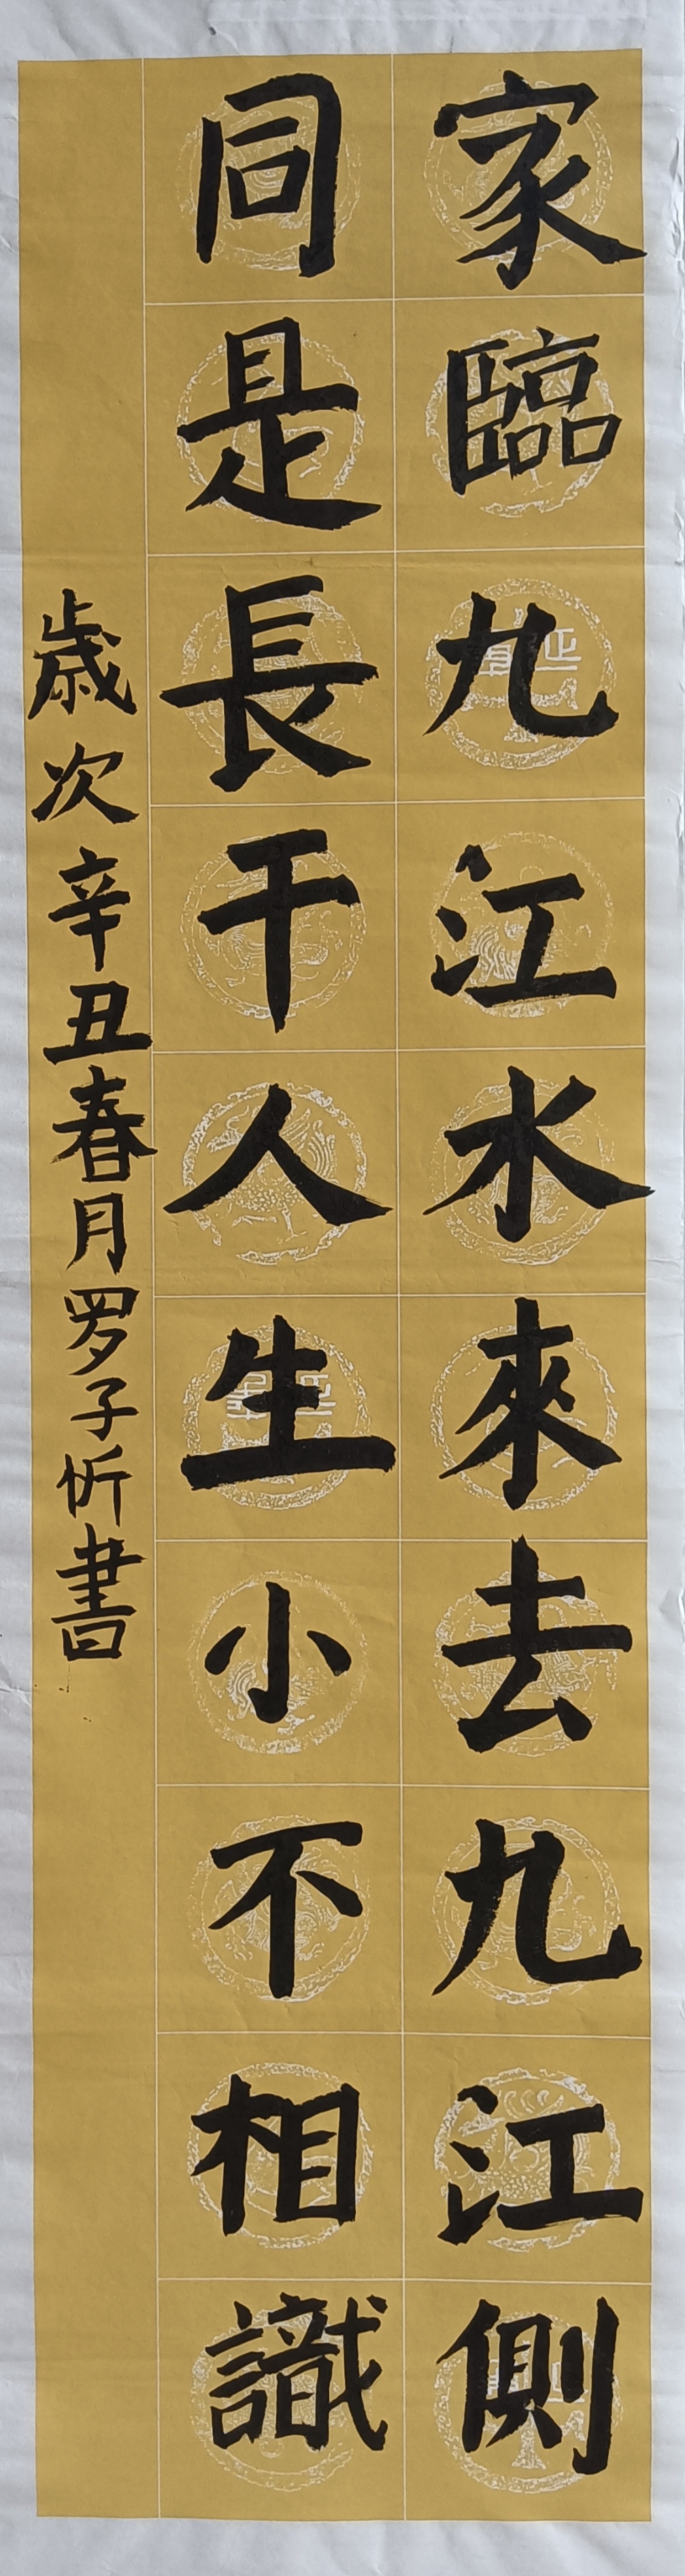 家臨九江水來去九江側
同是長干人生小不相識
歲次辛丑春月罗子忻書